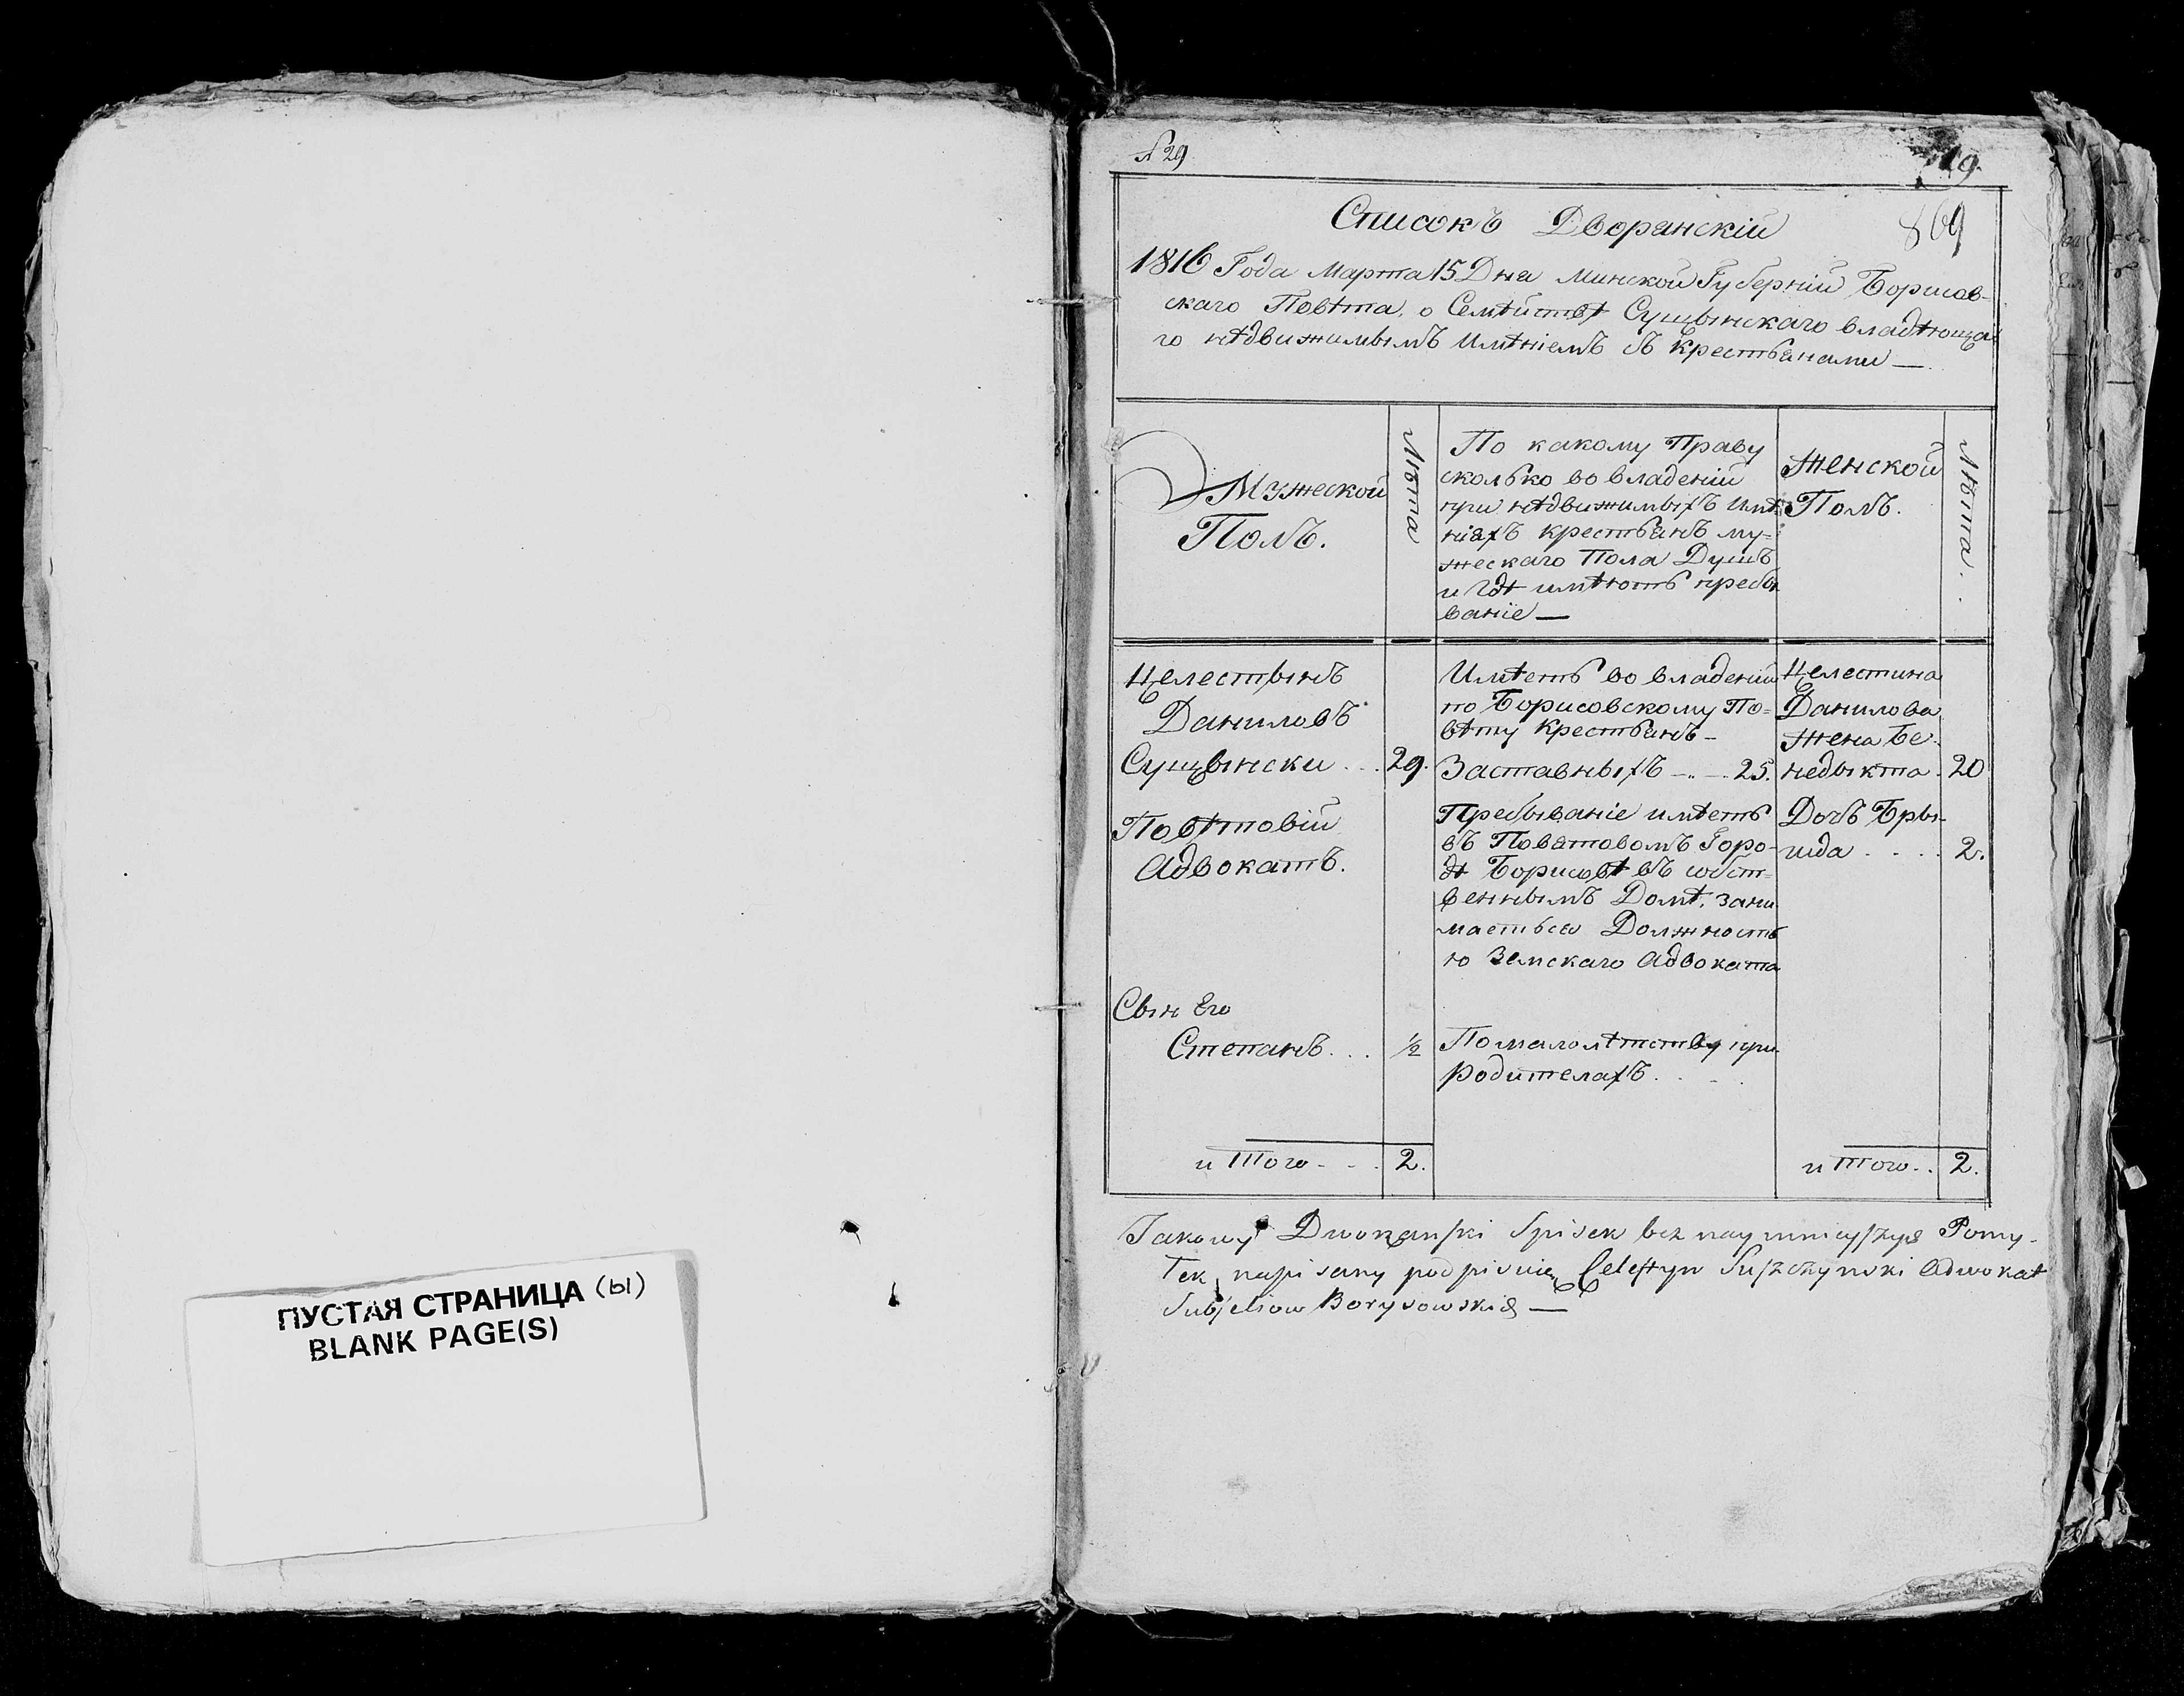 ПУСТАЯ СТРАНИЦА (ы)
BLANK PAGE(S)
№ 29
19.
869
Списокъ Дворянскій
1816 Года Марта 15 Дня Минской Губерніи Борисов-
скаго Повѣта, о Семѣйствѣ Сущынскаго владѣюща
го нѣдвижимымъ Имѣніемъ съ Крестьянами —
Мужеской
Полъ.
Лѣта
По какому Праву
сколько во владеніи
при нѣдвижимыхъ Имѣ
ніяхъ крестьянъ му-
жескаго Пола Душъ
и Гдѣ имѣютъ пребы
ваніе —
Женской
Полъ.
Лѣта.
Целестынъ
Даниловъ
Сущынски . . . 29.
Повѣтовій
Адвокатъ.
Сын Его
Степанъ. . . ½
и Того - - . 2.
Имѣетъ во владеніи
по Борисовскому По-
вѣту Крестьянъ -
Заставныхъ - . - 25.
Пребываніе имѣетъ
въ Поватовомъ Горо-
дѣ Борисовѣ въ собст-
веннымъ Домѣ, зани
маетьса Должность
ю Земскаго Адвоката
По малолѣтству при
Родителахъ . . .
Целестина
Данилова
Жена Бе-
недыкта . 20
Дочь Бры-
гида . . . . 2.
и Того . . 2.
Takowy Dworzanski Spisek bez naymnieyszye Pomy-
łek napisany podpisuię Celestyn Suszczynski Adwokat
Subseliow Borysowskich —